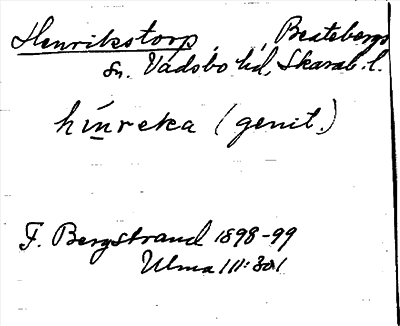 Henrikstorp, Beatebergs
sn. Vadsbo hd, Skarab. l.
hínreka (genit.)
F. Bergstrand 1898-99
Ulma 111:301